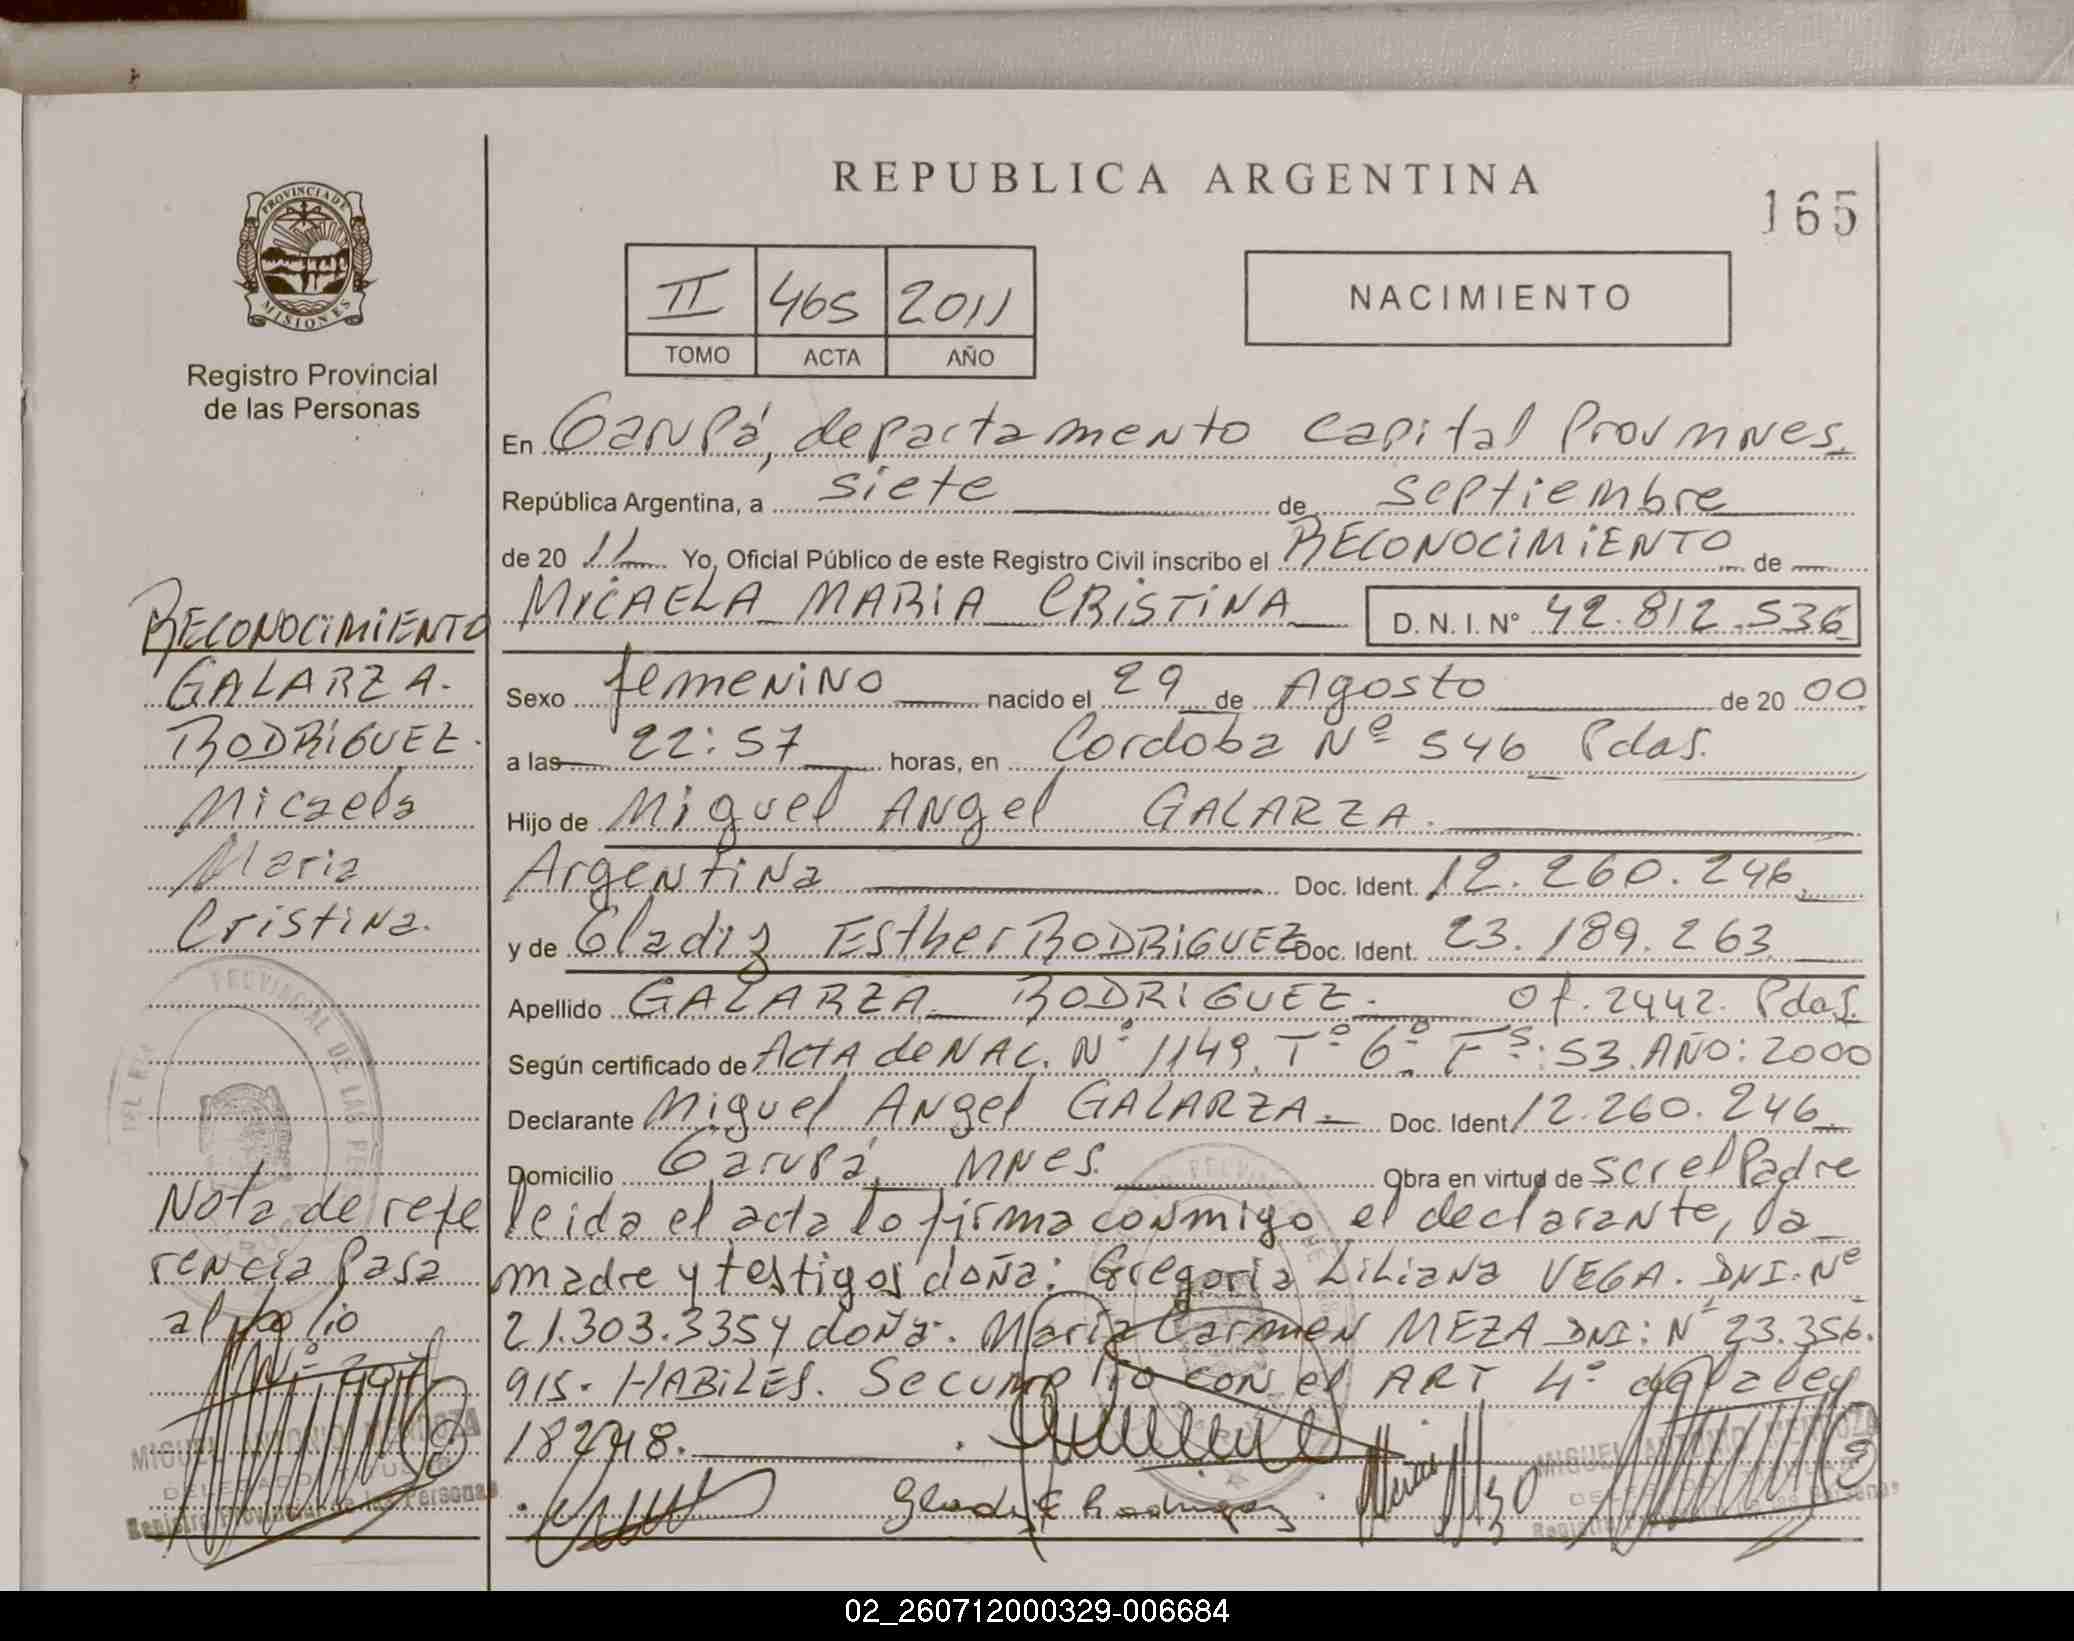 REPUBLICA ARGENTINA
165
PROVINCIA DE
MISIONES
Registro Provincial
de las Personas
II 465 2011
TOMO ACTA AÑO
NACIMIENTO
En Garupá, departamento Capital Prov Mnes.
República Argentina, a siete de septiembre
de 20 11 Yo, Oficial Público de este Registro Civil inscribo el RECONOCIMIENTO de
MICAELA MARIA CRISTINA D. N. I. N° 42.812.536
Sexo femenino nacido el 29 de Agosto de 20 00
a las 22:57 horas, en Cordoba Nº 546 Pdas.
Hijo de Miguel Angel GALARZA.
Argentina Doc. Ident. 12.260.246
y de Gladiz Esther RODRIGUEZ Doc. Ident. 23.189.263
Apellido GALARZA RODRIGUEZ. Of. 2442. Pdas.
Según certificado de Acta de NAC. Nº 1149. Tº 6º Fs: 53. AÑO: 2000
Declarante Miguel Angel GALARZA. Doc. Ident 12.260.246
Domicilio Garupá, Mnes. Obra en virtud de ser el Padre
leida el acta lo firma conmigo el declarante, la
madre y testigos doña: Gregoria Liliana VEGA. DNI. Nº
21.303.335 y doña. Maria Carmen MEZA DNI: Nº 23.356.
915. HABILES. Se cumplio con el ART 4º de la ley
18248.
Gladys E Rodriguez
RECONOCIMIENTO
GALARZA.
RODRIGUEZ.
Micaela
Maria
Cristina.
Nota de refe
rencia Pasa
al folio
MIGUEL ANTONIO MENDOZA
DELEGADO
Registro Provincial de las Personas
MIGUEL ANTONIO MENDOZA
02_260712000329-006684